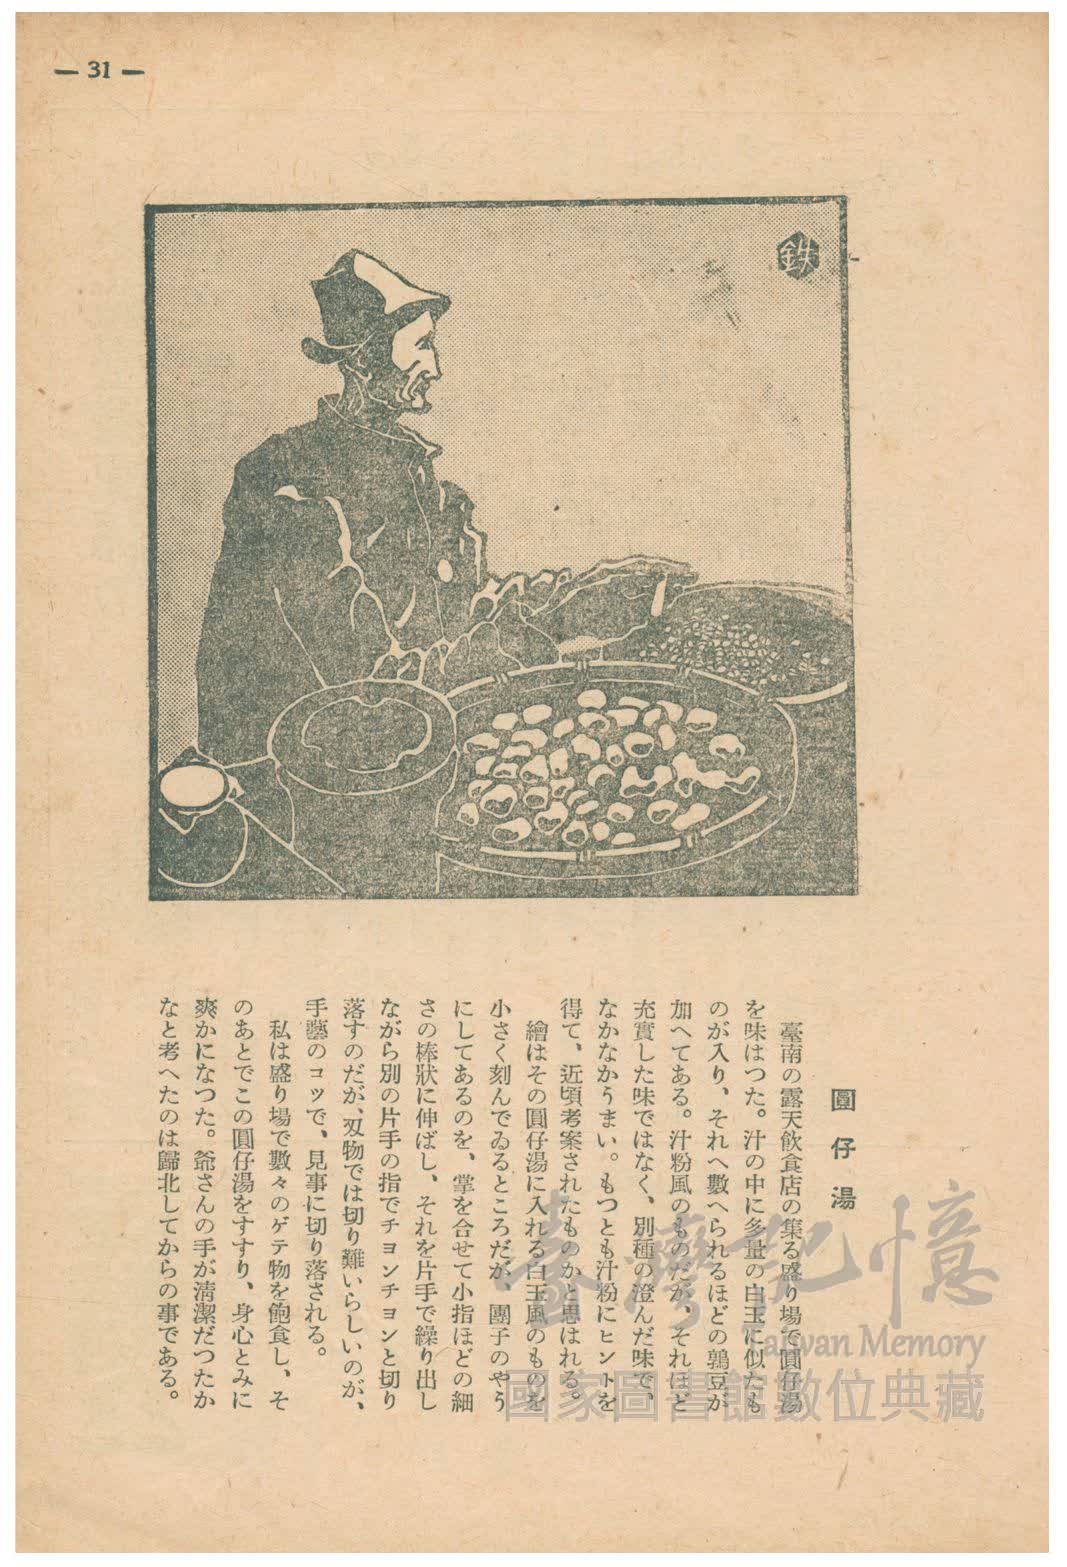 — 31 —
鉄
圓仔湯
臺南の露天飮食店の集る盛り場で圓仔湯
を味はつた。汁の中に多量の白玉に似たも
のが入り、それへ數へられるほどの鶉豆が
加へてある。汁粉風のものだが、それほど
充實した味ではなく、別種の澄んだ味で、
なかなかうまい。もつとも汁粉にヒントを
得て、近頃考案されたものかと思はれる。
繪はその圓仔湯に入れる白玉風のものを
小さく刻んでゐるところだが、團子のやう
にしてあるのを、掌を合せて小指ほどの細
さの棒狀に伸ばし、それを片手で繰り出し
ながら別の片手の指でチョンチョンと切り
落すのだが、刄物では切り難いらしいのが、
手藝のコツで、見事に切り落される。
私は盛り場で數々のゲテ物を飽食し、そ
のあとでこの圓仔湯をすすり、身心とみに
爽かになつた。爺さんの手が淸潔だつたか
なと考へたのは歸北してからの事である。
臺灣記憶
Taiwan Memory
國家圖書館數位典藏